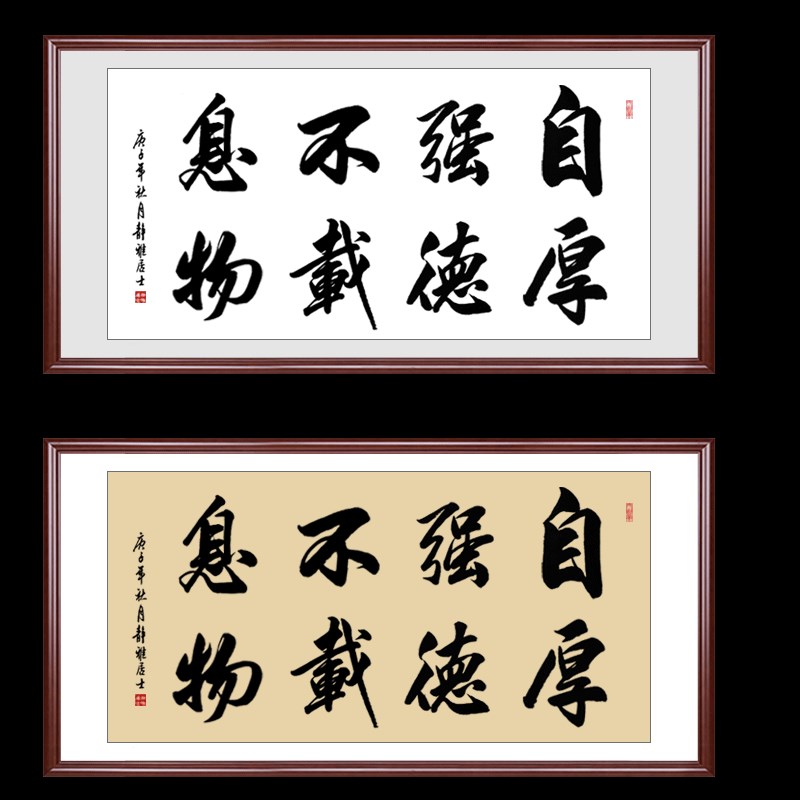 自强不息
厚德載物
庚子年秋月静雅居士
自强不息
厚德載物
庚子年秋月静雅居士